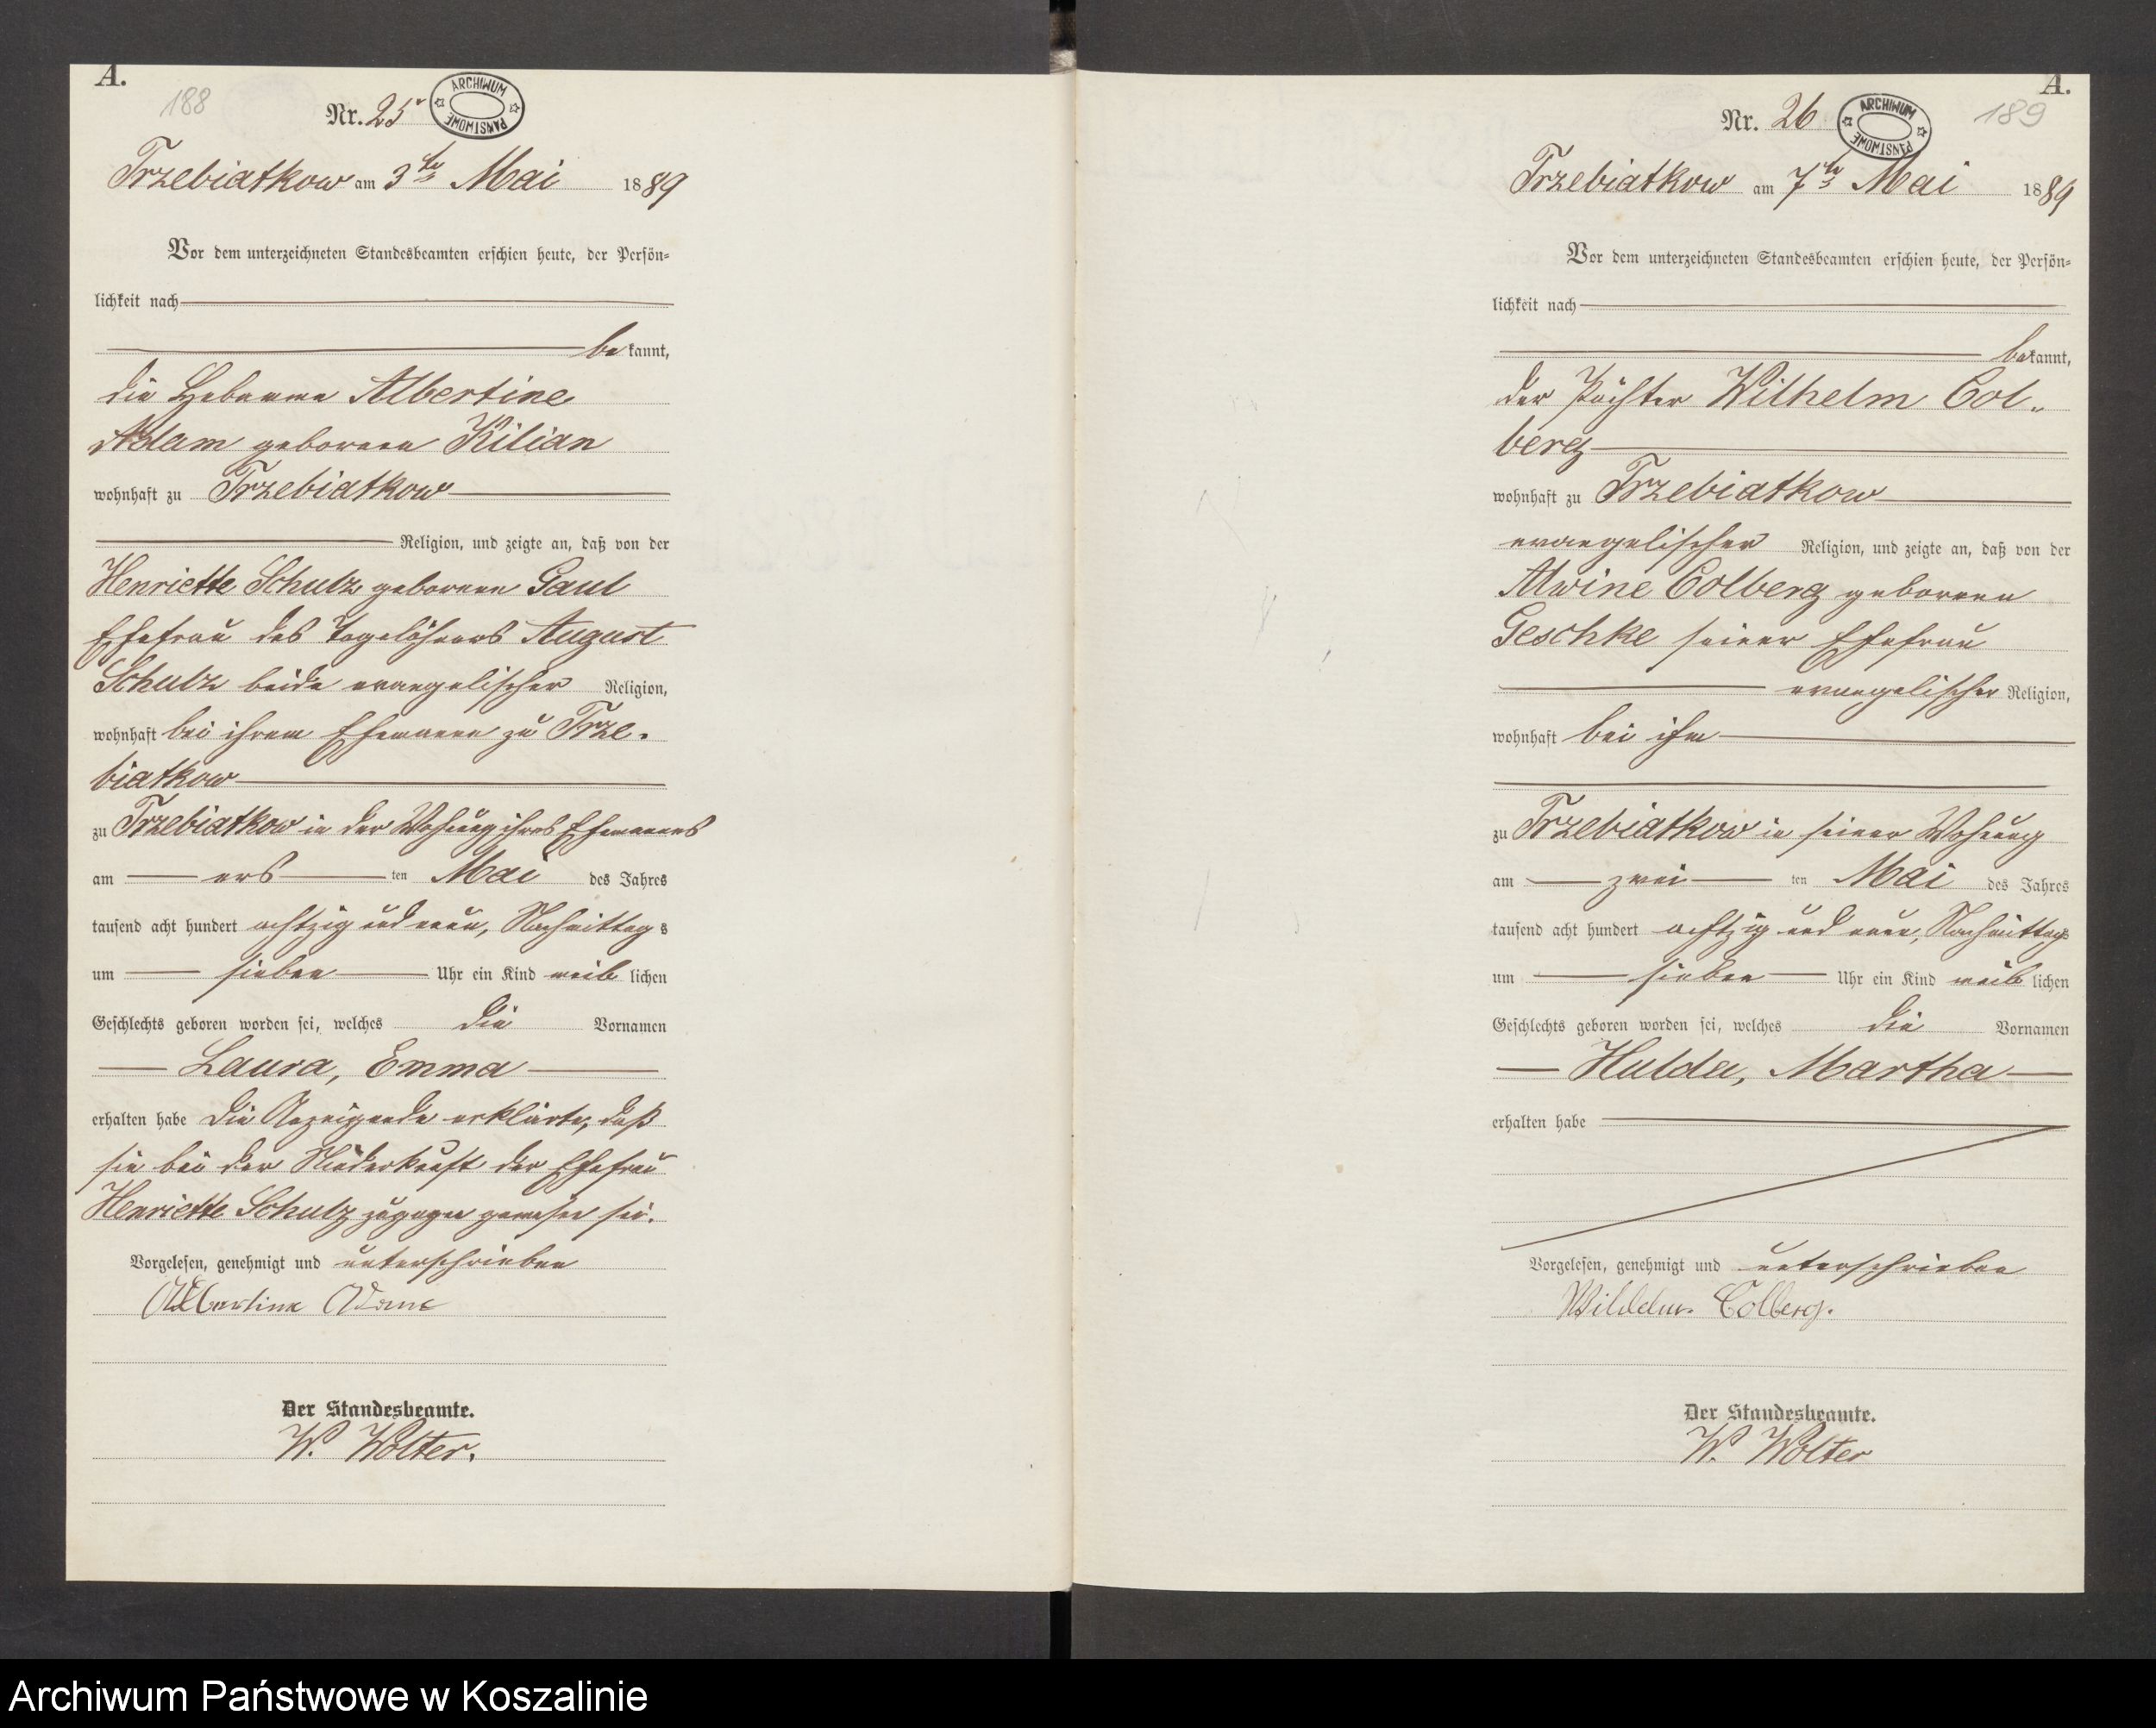 A.
188
Nr. 25
ARCHIWUM PAŃSTWOWE
Trzebiatkow am 3ten Mai 1889
Vor dem unterzeichneten Standesbeamten erschien heute, der Persön-
lichkeit nach
bekannt,
die Hebamme Albertine
Adam geborene Kilian
wohnhaft zu Trzebiatkow
Religion, und zeigte an, daß von der
Henriette Schulz geborenen Gaul
Ehefrau des Tagelöhners August
Schulz beide evangelischer Religion,
wohnhaft bei ihrem Ehemanne zu Trze-
biatkow
zu Trzebiatkow in der Wohnung ihres Ehemannes
am ers ten Mai des Jahres
tausend acht hundert achtzig und neun, Nachmittags
um sieben Uhr ein Kind weiblichen
Geschlechts geboren worden sei, welches die Vornamen
Laura, Emma
erhalten habe Die Anzeigende erklärte, daß
sie bei der Niederkunft der Ehefrau
Henriette Schulz zugegen gewesen sei.
Vorgelesen, genehmigt und unterschrieben
Albertine Adam
Der Standesbeamte.
W. Wolter.
A.
189
Nr. 26
ARCHIWUM PAŃSTWOWE
Trzebiatkow am 7ten Mai 1889
Vor dem unterzeichneten Standesbeamten erschien heute, der Persön-
lichkeit nach
bekannt,
der Pächter Wilhelm Col-
berg
wohnhaft zu Trzebiatkow
evangelischer Religion, und zeigte an, daß von der
Alwine Colberg geborenen
Geschke seiner Ehefrau
evangelischer Religion,
wohnhaft bei ihm
zu Trzebiatkow in seiner Wohnung
am zwei ten Mai des Jahres
tausend acht hundert achtzig und neun, Nachmittags
um sieben Uhr ein Kind weiblichen
Geschlechts geboren worden sei, welches die Vornamen
Hulda, Martha
erhalten habe
Vorgelesen, genehmigt und unterschrieben
Wilhelm Colberg.
Der Standesbeamte.
W. Wolter
Archiwum Państwowe w Koszalinie